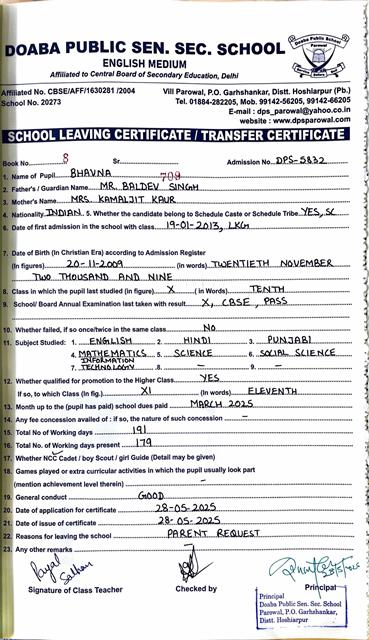 Doaba Public School
Parowal
DOABA PUBLIC SEN. SEC. SCHOOL
ENGLISH MEDIUM
Affiliated to Central Board of Secondary Education, Delhi
Affiliated No. CBSE/AFF/1630281 /2004 Vill Parowal, P.O. Garhshankar, Distt. Hoshiarpur (Pb.)
School No. 20273 Tel. 01884-282205, Mob. 99142-56205, 99142-66205
E-mail : dps_parowal@yahoo.co.in
website : www.dpsparowal.com
SCHOOL LEAVING CERTIFICATE / TRANSFER CERTIFICATE
Book No. 8 Sr. 709 Admission No. DPS-5832
1. Name of Pupil BHAVNA
2. Father's / Guardian Name MR. BALDEV SINGH
3. Mother's Name MRS. KAMALJIT KAUR
4. Nationality INDIAN 5. Whether the candidate belong to Schedule Caste or Schedule Tribe YES, SC
6. Date of first admission in the school with class 19-01-2013, LKG
7. Date of Birth (In Christian Era) according to Admission Register
(In figures) 20-11-2009 (in words) TWENTIETH NOVEMBER
TWO THOUSAND AND NINE
8. Class in which the pupil last studied (in figure) X ( in Words) TENTH
9. School/ Board Annual Examination last taken with result X, CBSE, PASS
10. Whether failed, if so once/twice in the same class NO
11. Subject Studied: 1. ENGLISH 2. HINDI 3. PUNJABI
4. MATHEMATICS 5. SCIENCE 6. SOCIAL SCIENCE
7. INFORMATION TECHNOLOGY 8. - 9. -
12. Whether qualified for promotion to the Higher Class YES
If so, to which Class (In fig.) XI (In Words) ELEVENTH
13. Month up to the (pupil has paid) school dues paid MARCH 2025
14. Any fee concession availed of : if so, the nature of such concession -
15. Total No of Working days 191
16. Total No. of Working days present 179
17. Whether NCC Cadet / boy Scout / girl Guide (Detail may be given)
18. Games played or extra curricular activities in which the pupil usually look part
(mention achievement level therein) -
19. General conduct GOOD
20. Date of application for certificate 28-05-2025
21. Date of issue of certificate 28-05-2025
22. Reasons for leaving the school PARENT REQUEST
23. Any other remarks
Signature of Class Teacher Checked by Principal
Principal
Doaba Public Sen. Sec. School
Parowal, P.O. Garhshankar,
Distt. Hoshiarpur